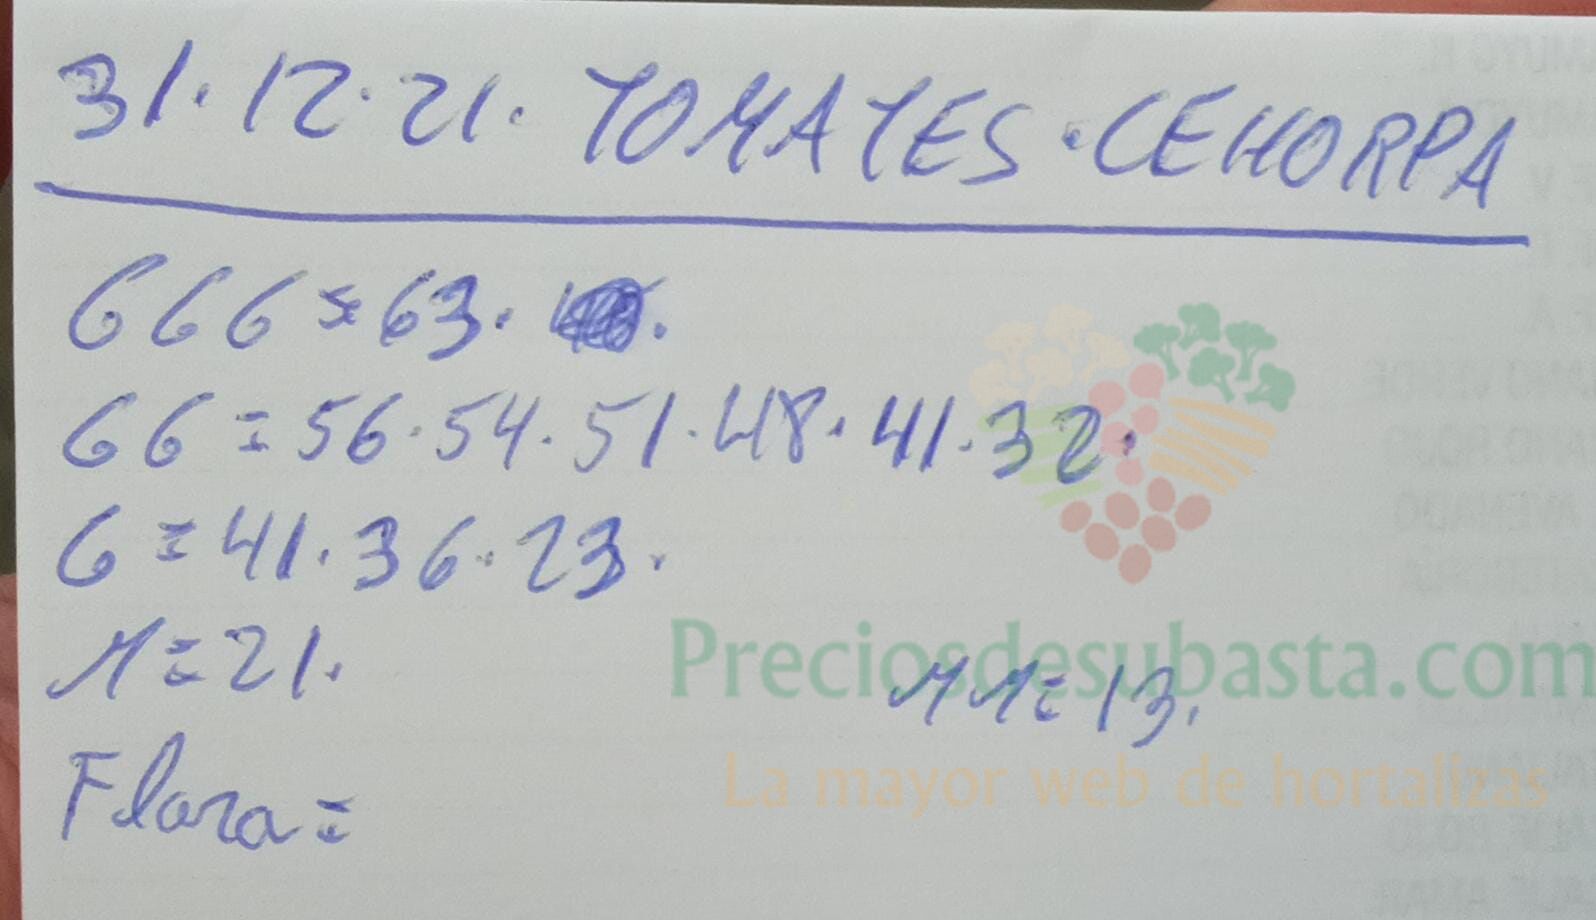 31·12·21· TOMATES·CEHORPA
GGG=63·
GG=56·54·51·48·41·32·
G=41·36·23·
M=21·
MM=13.
Flora=
Preciosdesubasta.com
La mayor web de hortalizas